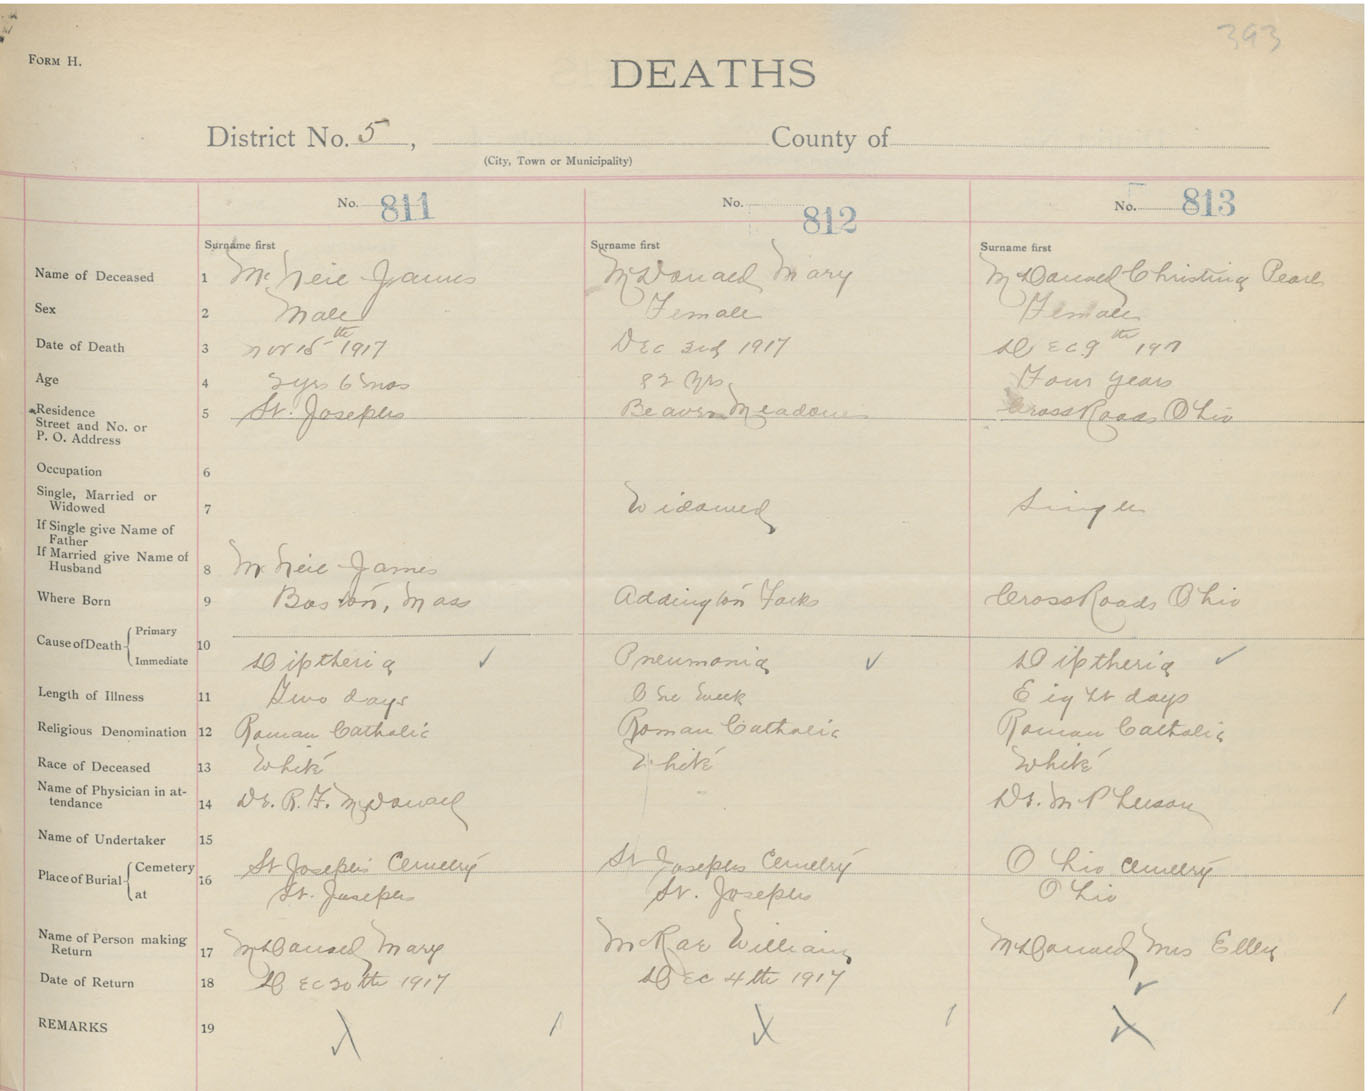 393
Form H.
DEATHS
District No. 5, County of
(City, Town or Municipality)
No. 811 No. 812 No. 813
Surname first Surname first Surname first
Name of Deceased 1 McNeil James McDonald Mary McDonald Christina Pearl
Sex 2 Male Female Female
Date of Death 3 Nov 15th 1917 Dec 3rd 1917 Dec 9th 1917
Age 4 2yrs 6 mos 82 Yrs Four years
Residence 5 St. Josephs Beaver Meadows Cross Roads Ohio
Street and No. or
P. O. Address
Occupation 6
Single, Married or
Widowed 7 Widowed Single
If Single give Name of
Father
If Married give Name of
Husband 8 McNeil James
Where Born 9 Boston, Mass Addington Forks Cross Roads Ohio
Cause of Death Primary 10
Immediate Diptheria ✓ Pneumonia ✓ Diptheria ✓
Length of Illness 11 Two days One week Eight days
Religious Denomination 12 Roman Catholic Roman Catholic Roman Catholic
Race of Deceased 13 White White White
Name of Physician in at-
tendance 14 Dr. R. F. McDonald Dr. McPherson
Name of Undertaker 15
Place of Burial Cemetery 16 St Josephs Cemetry St Josephs Cemetry Ohio Cemetry
at St. Josephs St. Josephs Ohio
Name of Person making
Return 17 McDonald Mary McRae William McDonald Mrs Ellen
Date of Return 18 Dec 20th 1917 Dec 4th 1917 ✓
REMARKS 19 X 1 X 1 X 1